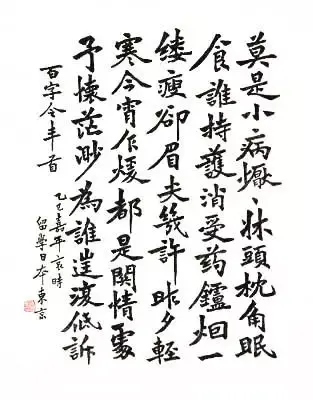 莫是小病懨〻牀頭枕角眠
食誰持護消受药鑪烟一
縷瘦卻眉夫幾許昨夕輕
寒今宵乍煖都是関情處
予懷茫渺為誰遑復低訴
百字令半首
乙巳嘉平哀時
留學日本東京